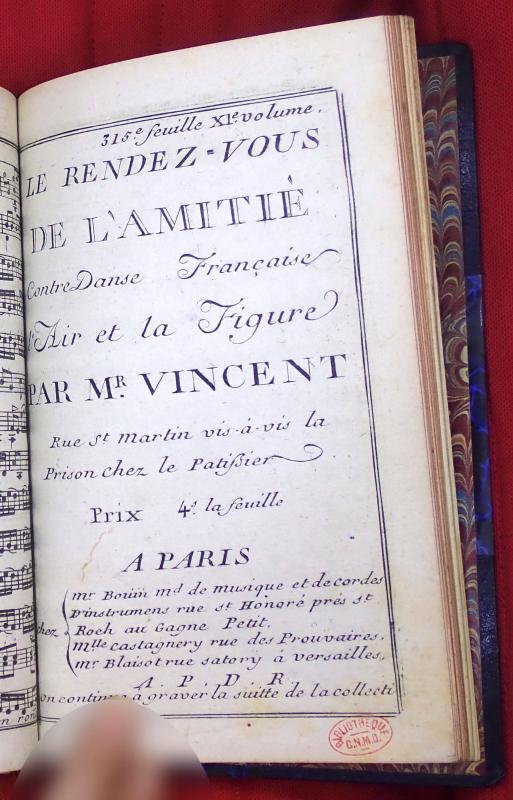 315e feuille XIe volume.
LE RENDEZ-VOUS
DE L'AMITIÉ
ContreDanse Française
l'Air et la Figure
PAR MR. VINCENT
Rue St Martin vis-à-vis la
Prison chez le Patißier
Prix 4s. la feuille
A PARIS
mr Boüin md de musique et de cordes
D'instrumens rue st Honoré prés st
chez Roch au Gagne Petit,
mlle castagnery rue des Prouvaires,
mr Blaisot rue satory à versailles,
A. P. D. R.
on continue à graver la suitte de la collecti
BIBLIOTHÈQUE
C.N.M.D.